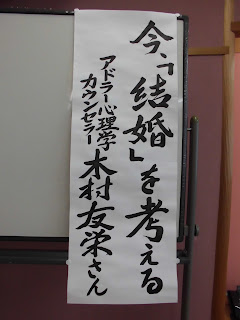 今、「結婚」を考える
アドラー心理学
カウンセラー
木村友栄さん